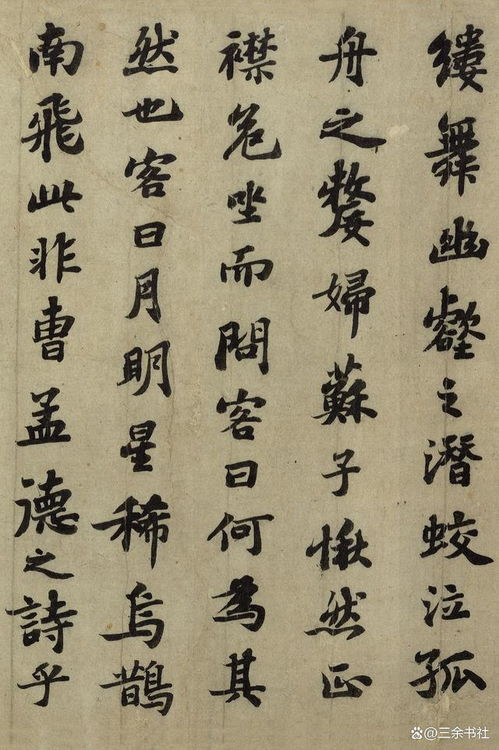 縷舞幽壑之潛蛟泣孤
舟之嫠婦蘇子愀然正
襟危坐而問客曰何為其
然也客曰月明星稀烏鵲
南飛此非曹孟德之詩乎
@三余书社